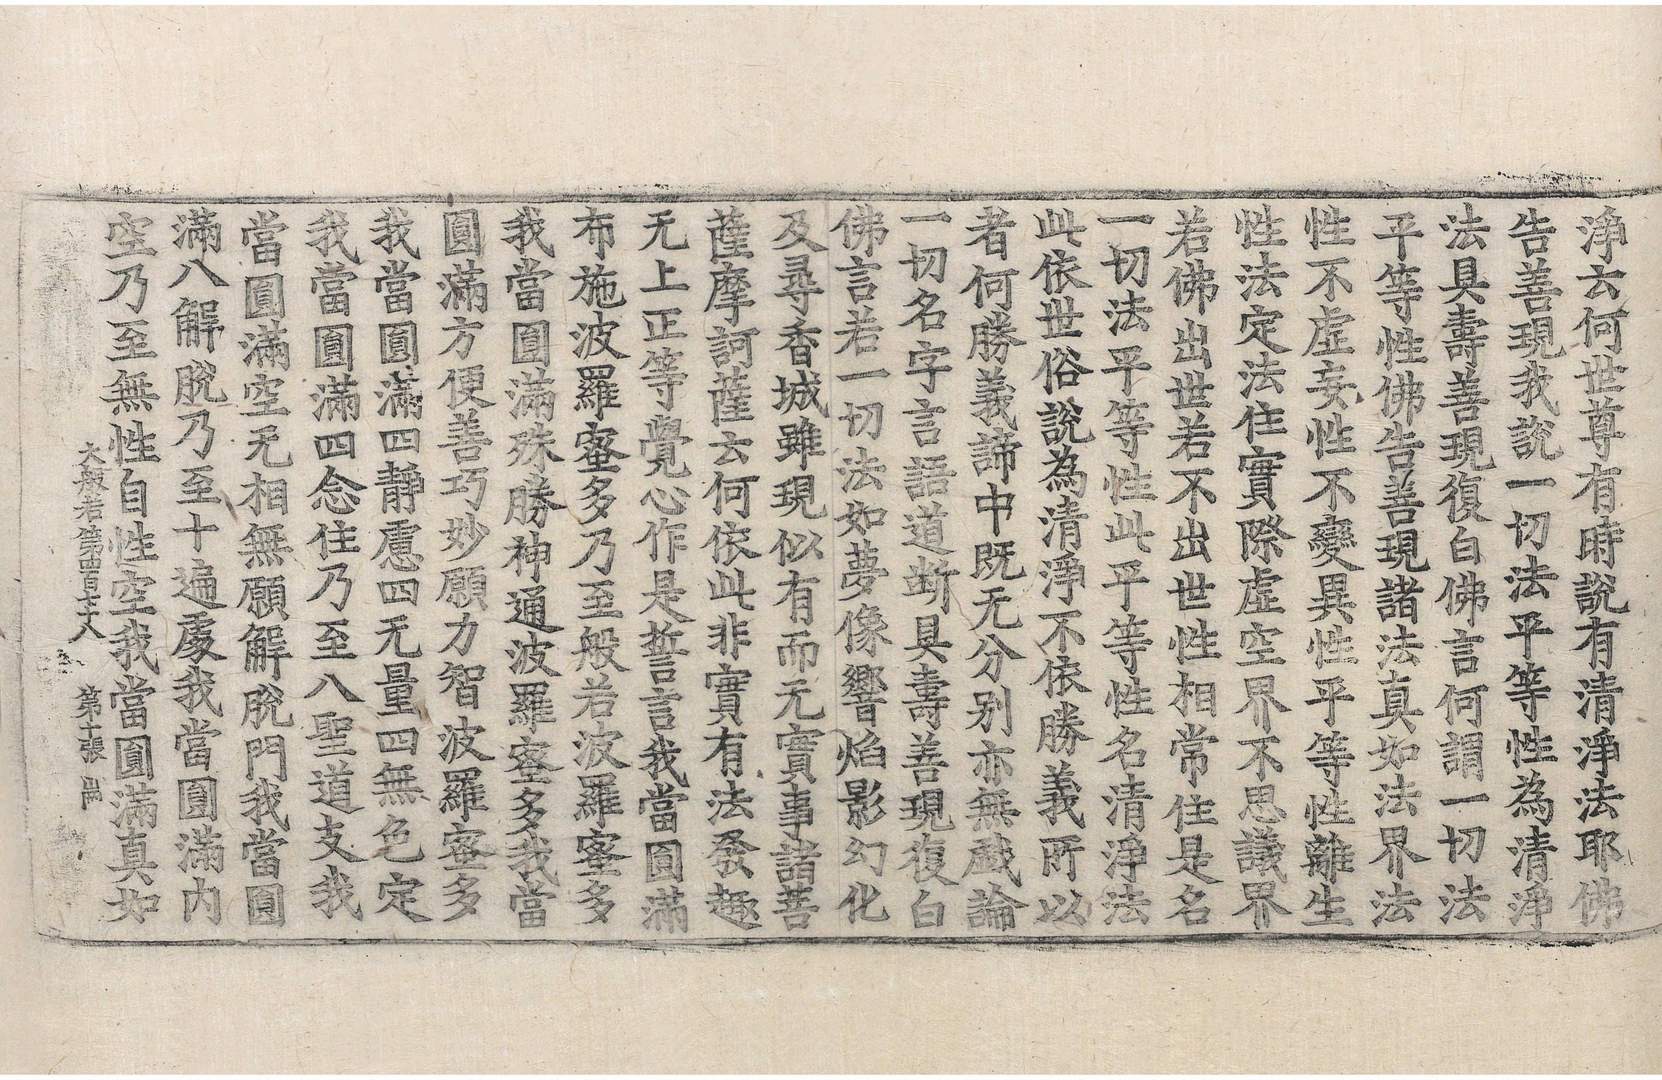 淨云何世尊有時說有清淨法耶佛
告善現我說一切法平等性為清淨
法具壽善現復白佛言何謂一切法
平等性佛告善現諸法真如法界法
性不虛妄性不變異性平等性離生
性法定法住實際虛空界不思議界
若佛出世若不出世性相常住是名
一切法平等性此平等性名清淨法
此依世俗說為清淨不依勝義所以
者何勝義諦中既无分別亦無戲論
一切名字言語道断具壽善現復白
佛言若一切法如夢像響焰影幻化
及尋香城雖現似有而无實事諸菩
薩摩訶薩云何依此非實有法發趣
无上正等覺心作是誓言我當圓滿
布施波羅蜜多乃至般若波羅蜜多
我當圓滿殊勝神通波羅蜜多我當
圓滿方便善巧妙願力智波羅蜜多
我當圓滿四靜慮四无量四無色定
我當圓滿四念住乃至八聖道支我
當圓滿空无相無願解脫門我當圓
滿八解脫乃至十遍處我當圓滿內
空乃至無性自性空我當圓滿真如
大般若第四百七十八 第十張 崗